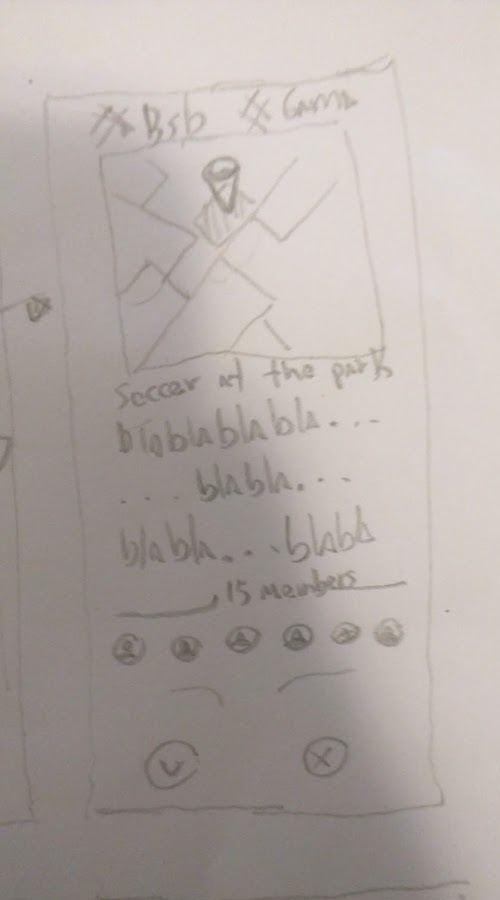 Soccer at the park
blablablabla...
... blabla...
blabla....blabla
15 members